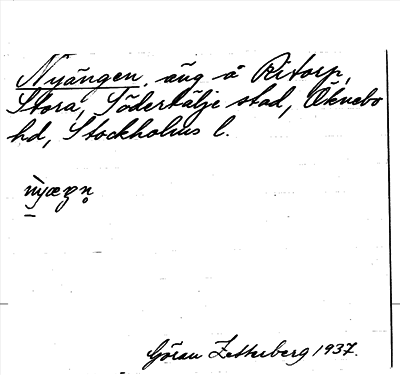 Nyängen, äng å Ritorp,
Stora, Södertälje stad, Öknebo
hd, Stockholms l.
Göran Zetterberg 1937.